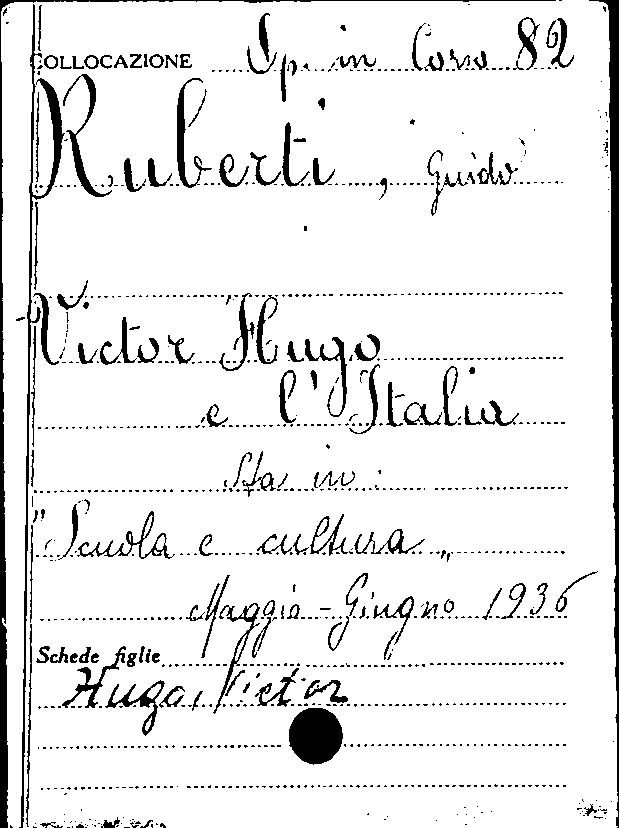 COLLOCAZIONE Sp. in Corso 82
Ruberti, Guido
Victor Hugo
e l'Italia
Sta in:
"Scuola e cultura„
Maggio - Giugno 1936
Schede figlie
Hugo, Victor